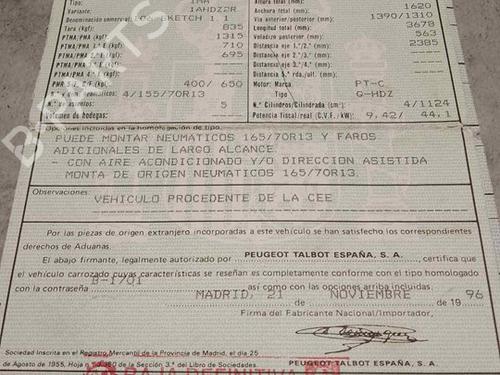 Tipo: 1HA Altura total (mm):
Variante: 1AHDZ2R Anchura total (mm): 1620
Denominación comercial: 106 SKETCH 1 1 Vía anterior/posterior (mm): 1390/1310
Tara (kgf): 835 Longitud total (mm): 3678
PTMA/PMA (kgf): 1315 Voladizo posterior (mm): 563
PTMA/PMA 1.er E (kgf): 710 Distancia eje 1.º/2.º (mm): 2385
PTMA/PMA 2.º E (kgf): 695 Distancia eje 2.º/3.º (mm):
PTMA/PMA 3.er E (kgf): Distancia eje 3.º/4.º (mm):
400/ 650 Motor: Marca PT-C
4/155/70R13 Tipo G-HDZ
N.º de asientos 5 N.º Cilindros/Cilindrada (cm³) 4/1124
Volumen de bodegas Potencia fiscal/real (C.V.F./kW) 9,42/ 44,1
Opciones incluidas en la homologación de tipo:
PUEDE MONTAR NEUMATICOS 165/70R13 Y FAROS
ADICIONALES DE LARGO ALCANCE.
- CON AIRE ACONDICIONADO Y/O DIRECCION ASISTIDA
MONTA DE ORIGEN NEUMATICOS 165/70R13.
Observaciones:
VEHICULO PROCEDENTE DE LA CEE
Por las piezas de origen extranjero incorporadas a este vehículo se han satisfecho los correspondientes
derechos de Aduanas.
El abajo firmante, legalmente autorizado por PEUGEOT TALBOT ESPAÑA, S. A., certifica que
el vehículo carrozado cuyas características se reseñan es completamente conforme con el tipo homologado
con la contraseña B-1701 así como con las opciones arriba incluidas.
MADRID, 21 de NOVIEMBRE de 1996
Firma del Fabricante Nacional/Importador,
Sociedad Inscrita en el Registro Mercantil de la Provincia de Madrid, el día 25
de Agosto de 1955, Hoja de la Sección 3.ª del Libro de Sociedades. PEUGEOT TALBOT ESPAÑA, S. A.
BAJA DEFINITIVA